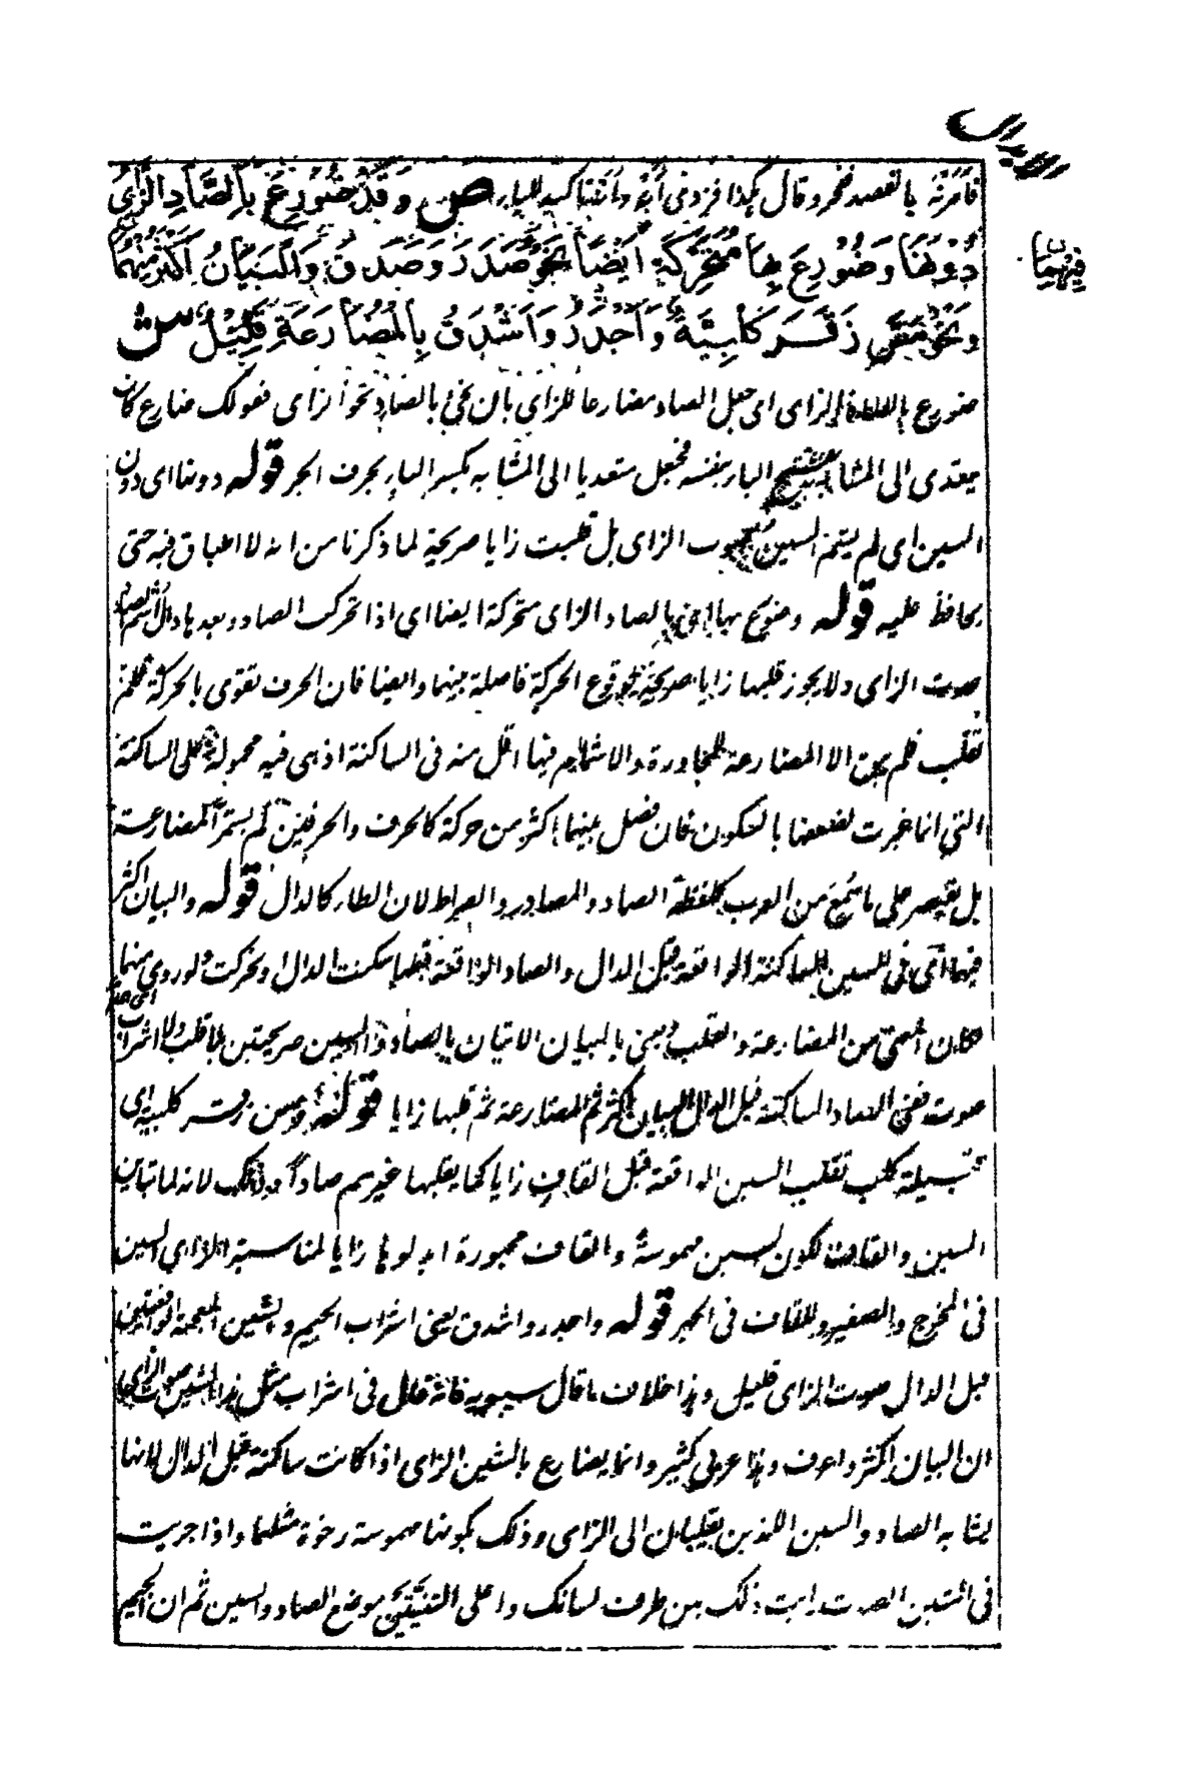 الابدال
فأمرته بالفصد فنحر وقال هكذا فزدى أنه وأنه تاكيد للياء ص وَقَدْ ضُورِعَ بِالصَّادِ الزَّايُ
دُونَهَا وَضُورِعَ بِهَا مُتَحَرِّكَةً أَيْضًا نَحْوُ صَدَرَ وَصَدَقَ وَالْبَيَانُ أَكْثَرُ مِنْهُمَا
فيهما
وَنَحْوُ مَسَّ زَقَرَ كَلْبِيَّةٌ وَأَجْدَرُ وَأَشْدَقُ بِالْمُضَارَعَةِ قَلِيلٌ ش
ضورع بالصاد الزاى اى جعل الصاد مضارعا للزاى بان نحى بالصاد نحو الزاى فقولك ضارع كان
يتعدى الى المشابه بفتح الباء بنفسه فجعل متعديا الى المشابه بكسر الباء بحرف الجر قوله دونها اى دون
السين اى لم يشم السين صوب الزاى بل قلبت زايا صريحة لما ذكرنا من انه لا اطباق فيه حتى
يحافظ عليه قوله وضورع بها اى بالصاد الزاى متحركة ايضا اى اذا تحركت الصاد وبعدها دال اشم الصاد
صوت الزاى ولا يجوز قلبها زايا صريحة لوقوع الحركة فاصلة بينهما وايضا فان الحرف تقوى بالحركة فلم
تقلب فلم يبق الا المضارعة للمجاورة والاشمام فيها اقل منه فى الساكنة اذ هى فيه محمولة على الساكنة
التى انما غيرت لضعفها بالسكون فان فصل بينهما اكثر من حركة كالحرف والحرفين لم يستمر المضارعة
بل يقتصر على ما سمع من العرب كلفظة الصاد والمصادر والصراط لان الطاء كالدال قوله والبيان اكثر
فيهما اى فى السين الساكنة الواقعة قبل الدال والصاد الواقعة قبلها سكنت الدال او تحركت ولو روى منهما
كان المعنى من المضارعة والقلب ويعنى بالبيان الاتيان بالصاد والسين صريحتين بلا قلب ولا اشراب
صوت ففى الصاد الساكنة قبل الدال البيان اكثر ثم المضارعة ثم قلبها زايا قوله ومس زقر كلبية اى
قبيلة كلب تقلب السين الواقعة قبل القاف زايا كما يقلبها غيرهم صادا وذلك لانه لما تباين
السين والقاف لكون السين مهموسة والقاف مجهورة ابدلوها زايا لمناسبة الزاى السين
فى المخرج والصفير وللقاف فى الجهر قوله واجدر واشدق يعنى اشراب الجيم والشين المعجمة الواقعتين
قبل الدال صوت الزاى قليل وهذا خلاف ما قال سيبويه فانه قال فى اشراب مثل هذا الشين صوت الزاى
ان البيان اكثر واعرف وهذا عربى كثير وانما يضارع بالشين الزاى اذا كانت ساكنة قبل الدال لانها
يشابه الصاد والسين اللذين يقلبان الى الزاى وذلك بكونها مهموسة رخوة مثلهما واذا جريت
فى الشين الصوت رايت ذلك بين طرف لسانك واعلى الثنيتين موضع الصاد والسين ثم ان الجيم